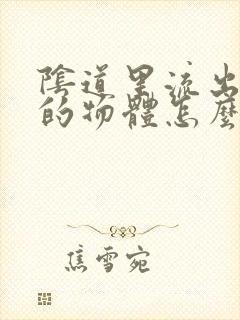 陰道里流出
的物體怎麼
焦雪宛